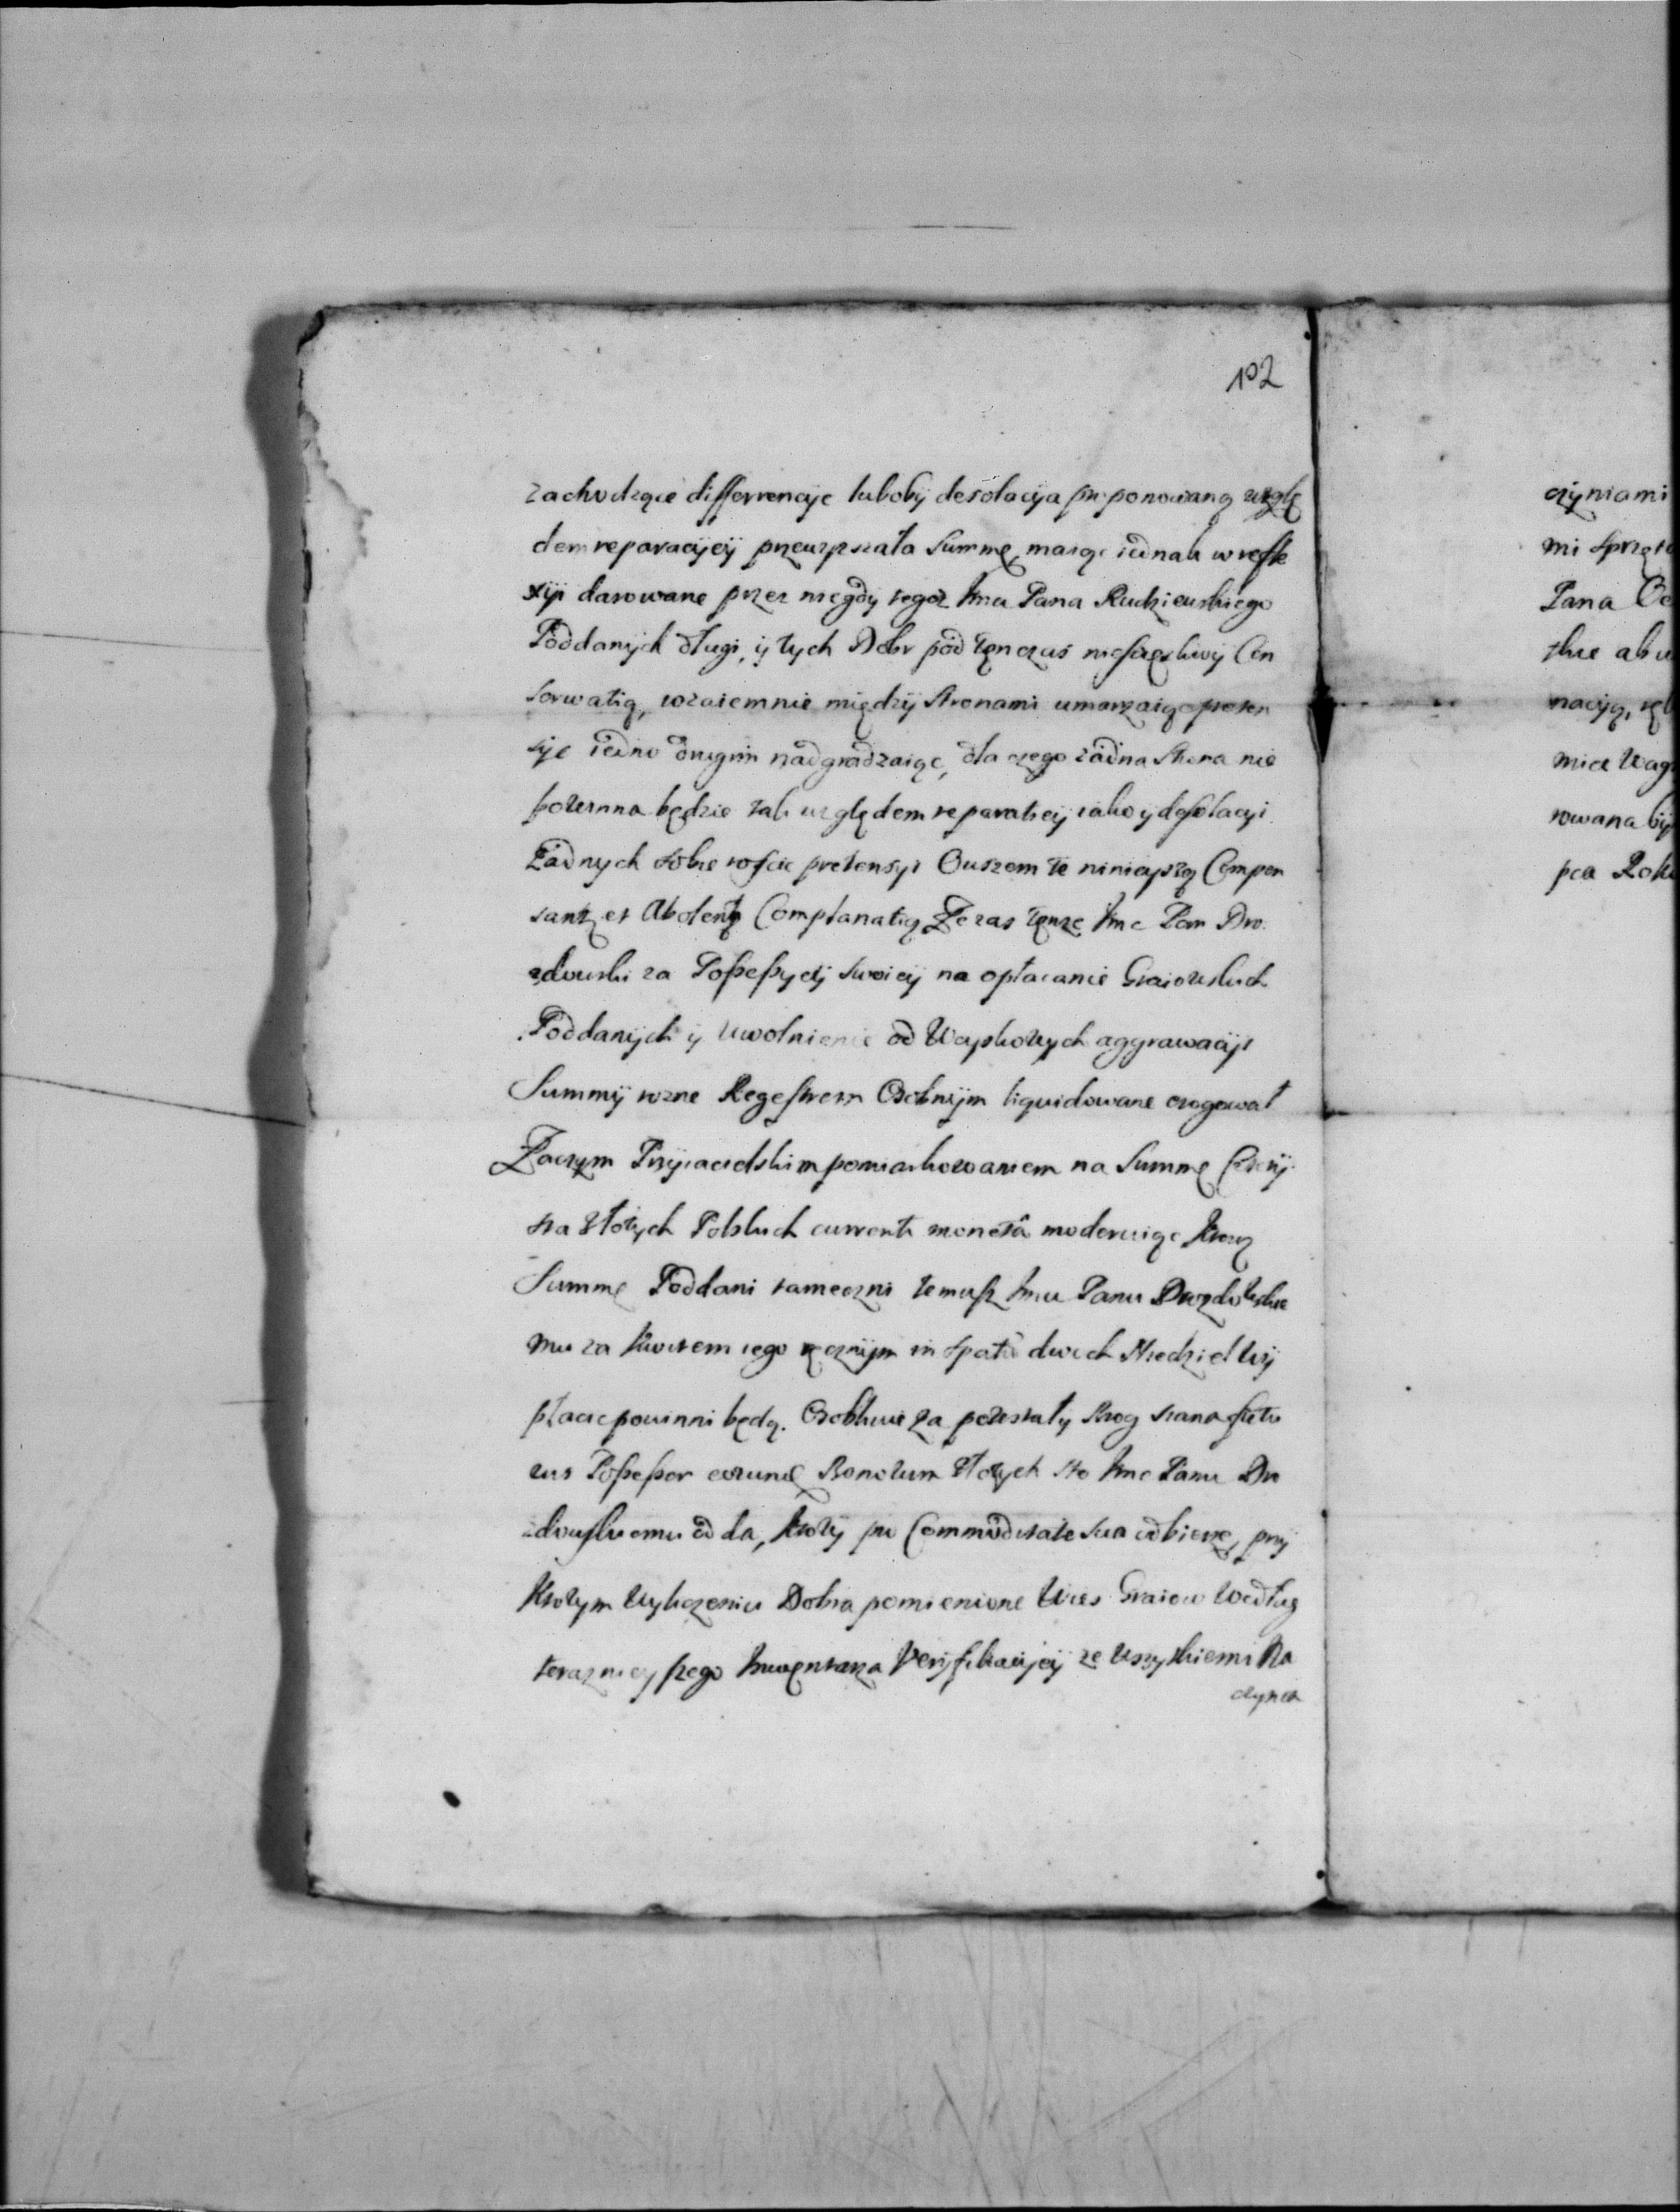 102
zachodzące differrencyje luboby desolacyja proponowaną wzglę
dem reparacyjej przewyzszała Summę, maiąc iednak w refle
xyji darowane przez niegdy tegoz Jmci Pana Rudzieuskiego
Poddanych długi, ij tych Dobr pod tęn czas niesczęsliwij Con
serwatią, wzaiemnie międzij Stronami umarzaiąc preten
syje iedno drugim nadgradzaiąc, dla czego żadna Strona nie
powinna będzie tak względem reparatiey iako y desolacyi
Żadnych sobie roscic pretensyi Owszem te ninieyszą Compen
santę et Abolentę Complanatią Ze zas tęnze Jmc Pan Dro
zdowski za Possessyej swoiey na opłacanie Graiowskich
Poddanych ij uwolnienie od Woyskowych aggrawacyji
Summij rozne Regestrem Osobnym liquidowane erogował
Zaczym Przyiacielskim pomiarkowaniem na Summę Czterij
sta złotych Polskich currenti monetâ moderuiąc Ktorą
Summę Poddani tameczni temusz Jmci Panu Drozdowskie
mu za Kwitem iego ręcznym in spatio dwoch Niedziel wij
płacic powinni będą. Osobliwie za pozostały Stog siana futu
rus Possessor eorundę Bonorum Złotych sto Jmc Panu Dro
zdowskiemu odda, Ktory pro Commoditate sua odbierze, przy
Ktorym Wyliczeniu Dobra pomienione Wies Graiow Według
teraznieyszego Inwentarza Veryfikacyjej ze Wszystkiemi Na
czynia
czyniami
mi sprzęt
Pana
nacyją,
mice
rowana
pca